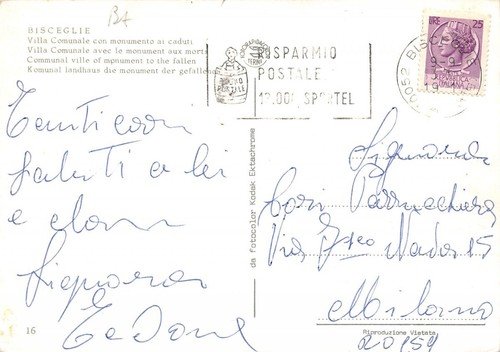 BA
BISCEGLIE
Villa Comunale con monumento ai caduti
Villa Comunale avec le monument aux morts
Communal ville of monument to the fallen
Komunal landhaus die monument der gefallenen
RISPARMIO
POSTALE
12.000 SPORTEL
BUONO
POSTALE
LIRE 25
70052 BI
19
Tanti cari
saluti a lei
e alla
Signora
da fotocolor Kodak Ektachrome
Signora
Via Nado 15
Milano
20154
16
Riproduzione Vietata